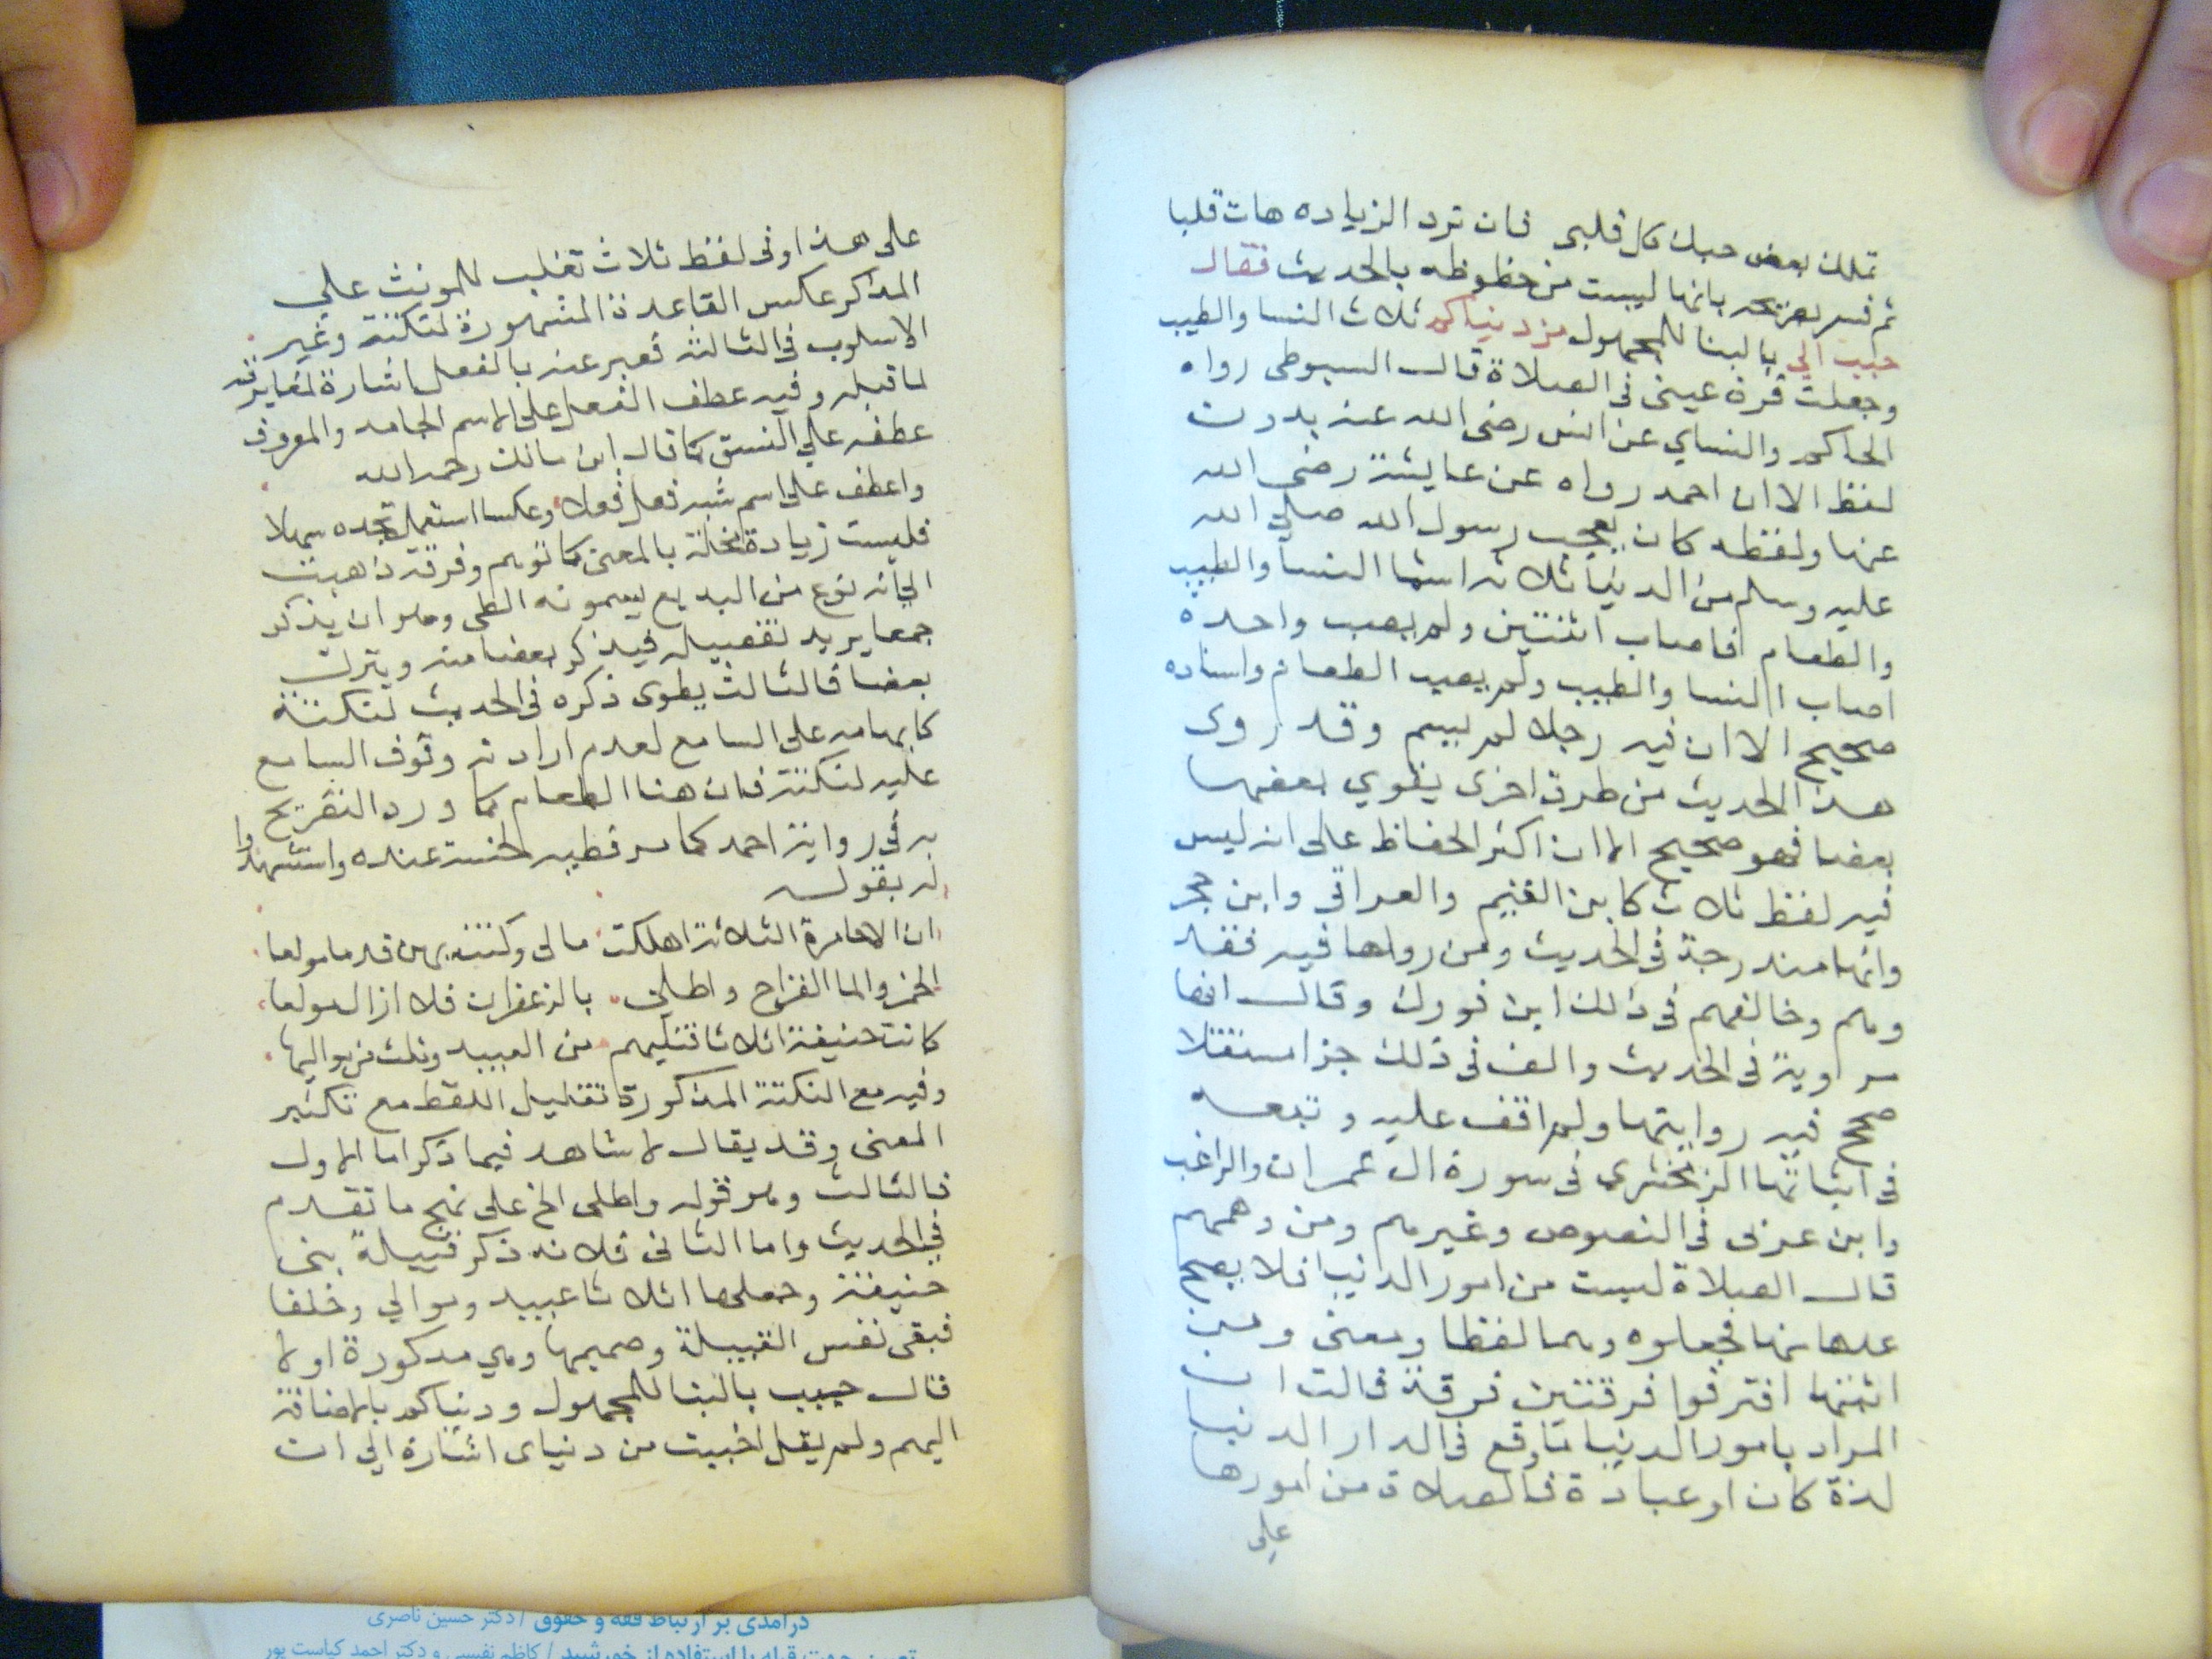 تملك بعض حبك كل قلبى فان ترد الزياده هات قلبا
ثم فسر بانها ليست من حظوظه بالحديث فقال
حبب الي بالبنا للمجهول من دنياكم ثلاث النسا والطيب
وجعلت قرة عينى فى الصلاة قال السيوطى رواه
الحاكم والنساي عن انس رضى الله عنه بدون
لفظ الا ان احمد رواه عن عايشة رضى الله
عنها ولفظه كان يعجب رسول الله صلي الله
عليه وسلم من الدنيا ثلاثة اشيا النسا والطيب
والطعام فاصاب اثنتين ولم يصب واحدة
اصاب النسا والطيب ولم يصب الطعام واسناده
صحيح الا ان فيه رجلا لم يسم وقد روى
هذا الحديث من طرق اخرى يقوي بعضها
بعضا فهو صحيح الا ان اكثر الحفاظ على انه ليس
فيه لفظ ثلاث كابن القيم والعراقى وابن حجر
وانها مندرجة فى الحديث ومن رواها فيه فقد
وهم وخالفهم فى ذلك ابن فورك وقال انها
مروية فى الحديث والف فى ذلك جزا مستقلا
صحح فيه روايتها ولم اقف عليه وتبعه
فى اثباتها الزمخشرى فى سورة ال عمران والراغب
وابن عربى فى الفصوص وغيرهم ومن وهمهم
قال الصلاة ليست من امور الدنيا فلا يصح
عدها منها فجعلوه وهما لفظا ومعنى ومن
اثبتها افترقوا فرقتين فرقة قالت ان
المراد بامور الدنيا ما وقع فى الدار الدنيا
لذة كان او عبادة فالصلاة من امورها
على
على هذا وفى لفظ ثلاث تغليب للمونث علي
المذكر عكس القاعدة المشهورة لنكتة وغير
الاسلوب فى الثالث فعبر عنه بالفعل اشارة لمغايرته
لما قبله وفيه عطف الفعل على الاسم الجامد والمعروف
عطفه علي النسق كما قال ابن مالك رحمه الله
واعطف على اسم شبه فعل فعلا وعكسا استعمل تجده سهلا
فليست زيادة مخلة بالمعنى كما توهم وفرقة ذهبت
الي انه نوع من البديع يسمونه الطى وهو ان يذكر
جمعا يريد تفصيله فيذكر بعضا منه ويترك
بعضا فالثالث يطوى ذكره فى الحديث لنكتة
كابهامه على السامع لعدم ارادته وقوف السامع
عليه لنكتة فان هنا الطعام كما ورد التصريح
به فى رواية احمد كما مر فطيه لخسته عنده واستشهدوا
له بقوله
ان الاحامرة الثلاثة اهلكت مالى وكنت بهن قدما مولعا
الخمر والما القراح واطلى بالزعفران فلا ازال مولعا
كانت حنيفة اثلاثا فثلثهم من العبيد وثلث من مواليها
وفيه مع النكتة المذكورة تقليل اللفظ مع تكثير
المعنى وقد يقال لا شاهد فيما ذكر اما الاول
فالثالث وهو قوله واطلى الخ على نهج ما تقدم
فى الحديث واما الثانى فلانه ذكر قبيلة بنى
حنيفة وجعلها اثلاثا عبيد وموالي وخلفا
فبقى نفس القبيلة وصميمها وهي مذكورة اولا
قال حبب بالبنا للمجهول ودنياكم بالاضافة
اليهم ولم يقل احببت من دنياى اشارة الي ان
درآمدی بر ارتباط فقه و حقوق / دکتر حسین ناصری
تعیین جهت قبله با استفاده از خورشید / کاظم نفیسی و دکتر احمد کیاست پور